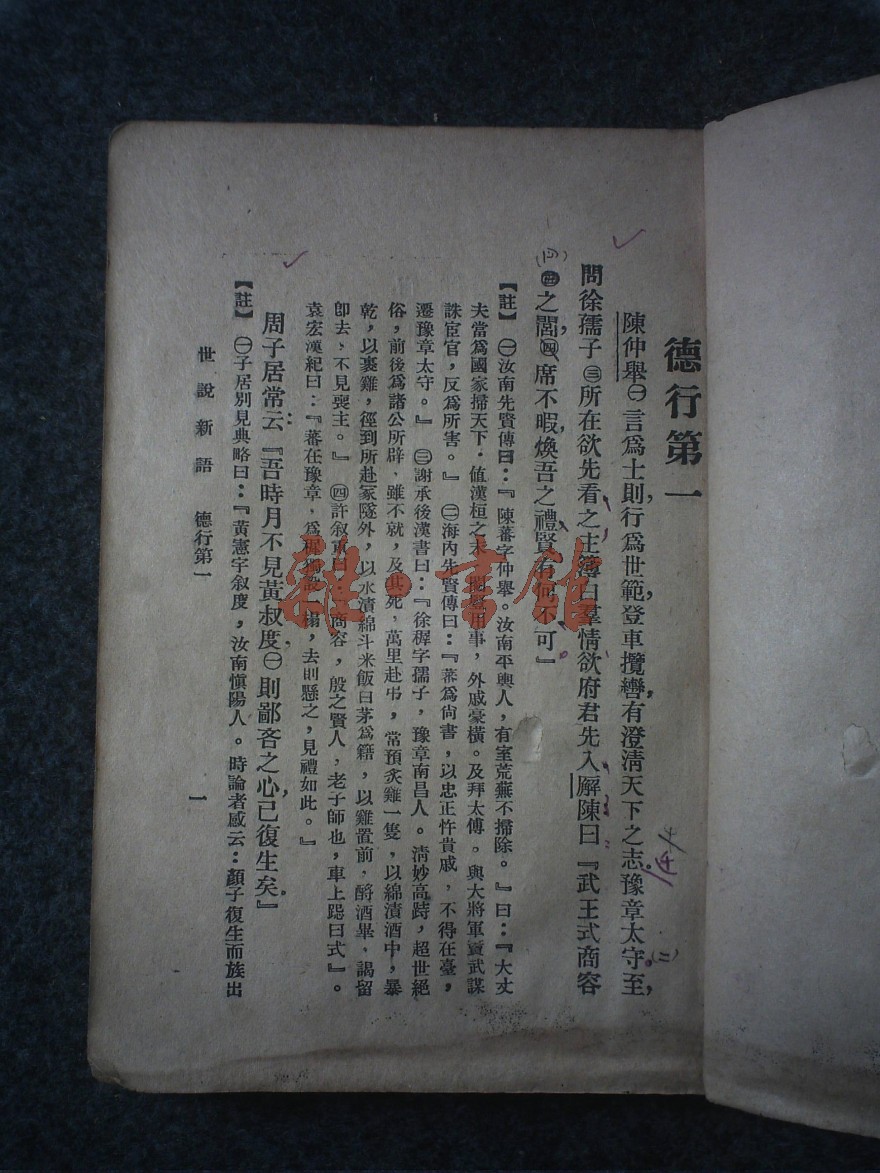 德行第一
陳仲舉㊀言爲士則行爲世範登車攬轡有澄清天下之志豫章太守至,
問徐孺子㊂所在欲先看之主簿白羣情欲府君先入廨陳曰『武王式商容
之閭㊃席不暇煖吾之禮賢有何不可』
【註】 ㊀汝南先賢傳曰:『陳蕃字仲舉。汝南平輿人,有室荒蕪不掃除。』曰:『大丈
夫當爲國家掃天下.值漢桓之末,閹豎用事,外戚豪橫。及拜太傅。與大將軍竇武謀
誅宦官,反爲所害。』 ㊁海內先賢傳曰:『蕃爲尙書,以忠正忤貴戚,不得在臺,
遷豫章太守。』 ㊂謝承後漢書曰:『徐穉字孺子,豫章南昌人。清妙高跱,超世絕
俗,前後爲諸公所辟,雖不就,及其死,萬里赴弔,常預炙雞一隻,以綿漬酒中,暴
乾,以裹雞,徑到所赴冢隧外,以水漬綿斗米飯白茅爲籍,以雞置前,酹酒畢,謁留
卽去,不見喪主。』 ㊃許叔重曰:『商容,殷之賢人,老子師也,車上跽曰式』。
袁宏漢紀曰:『蕃在豫章,爲穉獨設一榻,去則懸之,見禮如此。』
周子居常云:『吾時月不見黃叔度㊀則鄙吝之心已復生矣』
【註】 ㊀子居別見典略曰:『黃憲字叙度,汝南愼陽人。時論者咸云:顏子復生而族出
世說新語 德行第一
一
雜·書館
(二)
(四)